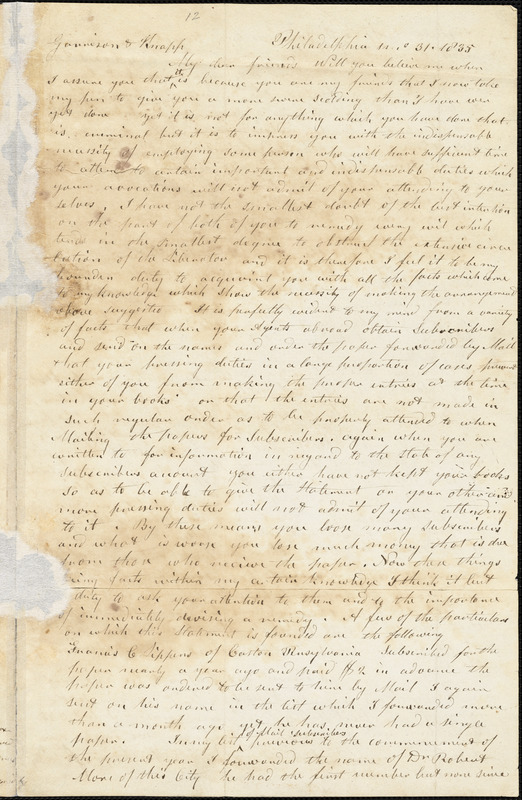 12
Garrison & Knapp Philadelphia 1 mo 31. 1835
My dear friends Will you believe me when
I assure you that it is because you are my friends that I now take
my pen to give you a more severe scolding than I have ever
yet done Yet it is not for anything which you have done that
is criminal but it is to impress you with the indispensable
necessity of employing some person who will have sufficient time
to attend to certain important and indispensable duties which
your avocations will not admit of your attending to your
selves, I have not the smallest doubt of the best intention
on the part of both of you to remedy every evil which
tends in the smallest degree to obstruct the extensive circu
lation of the Liberator and it is therefore I feel it to be my
bounden duty to acquaint you with all the facts which come
to my knowledge which show the necessity of making the arrangement
above suggested It is perfectly evident to my mind from a variety
of facts that when your Agents abroad obtain Subscribers
and send on the names and order the paper forwarded by Mail
that your pressing duties in a large proportion of cases prevent
either of you from making the proper entries at the time
in your books or that the entries are not made in
such regular order as to be properly attended to when
Mailing the papers for Subscribers. again when you are
written to for information in regard to the State of any
subscribers account you either have not kept your books
so as to be able to give the Statement or your other and
more pressing duties will not admit of your attending
to it. By these means you loose many subscribers
and what is worse you lose much money that is due
from those who receive the paper. Now these things
being facts within my certain knowledge I think it but
duty to ask your attention to them and to the importance
of immediately devising a remedy. A few of the particulars
on which this Statement is founded are the following
Francis C Lippens of Easton Pensylvania Subscribed for the
paper nearly a year ago and paid $2 in advance the
paper was ordered to be sent to him by Mail I again
sent on his name in the list which I forwarded more
than a month ago yet he has never had a single
paper. In my list of Mail subscribers previous to the commencement of
the present year I forwarded the name of Dr Robert
More of this City he had the first number but none since